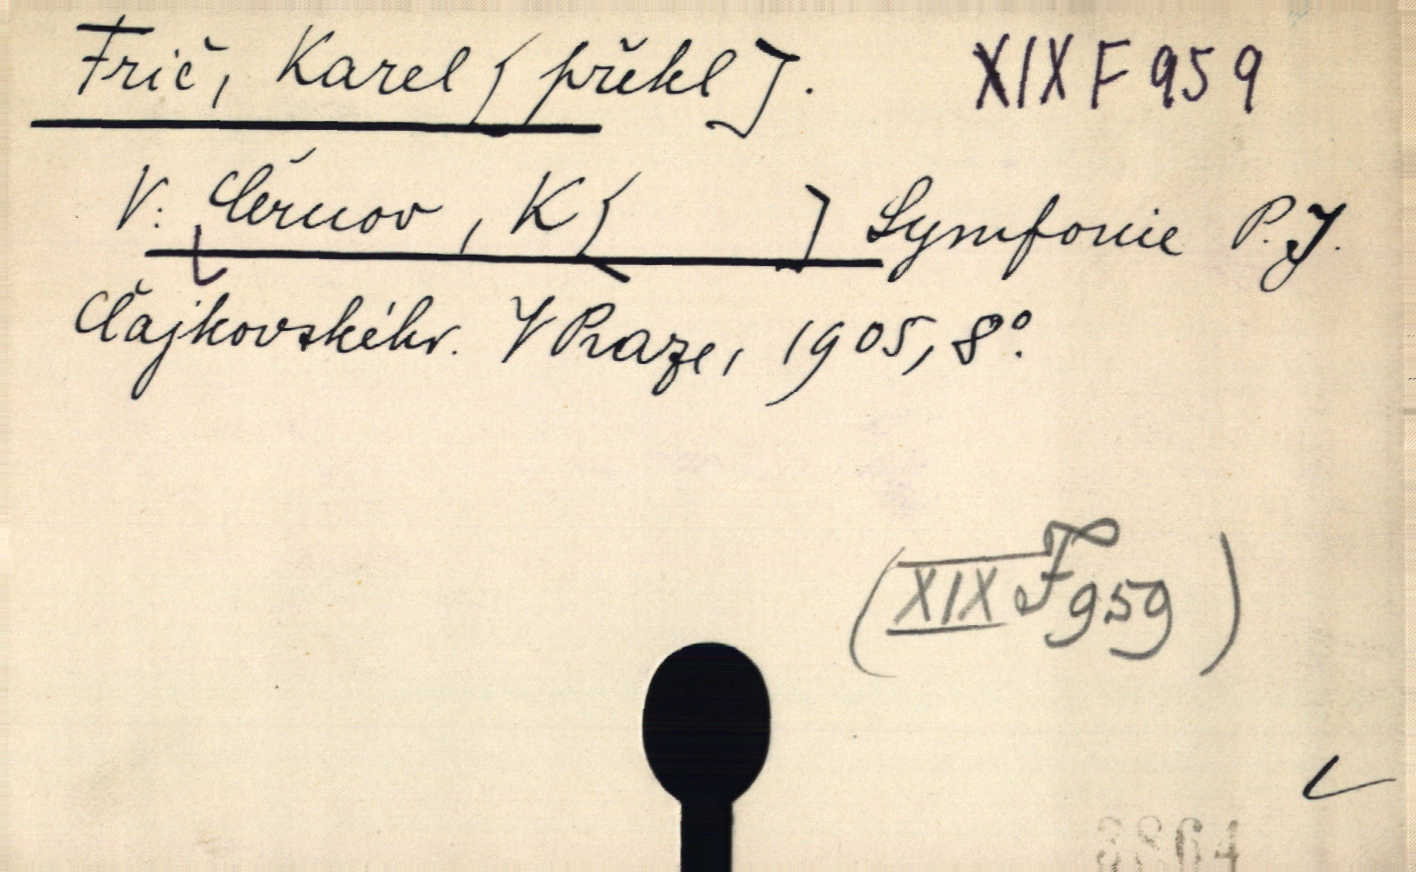 Frič, Karel [překl]. XIX F 959
V: Černov, K[ ] Symfonie P. J.
Čajkovského. V Praze, 1905, 8°.
(XIX F 959)